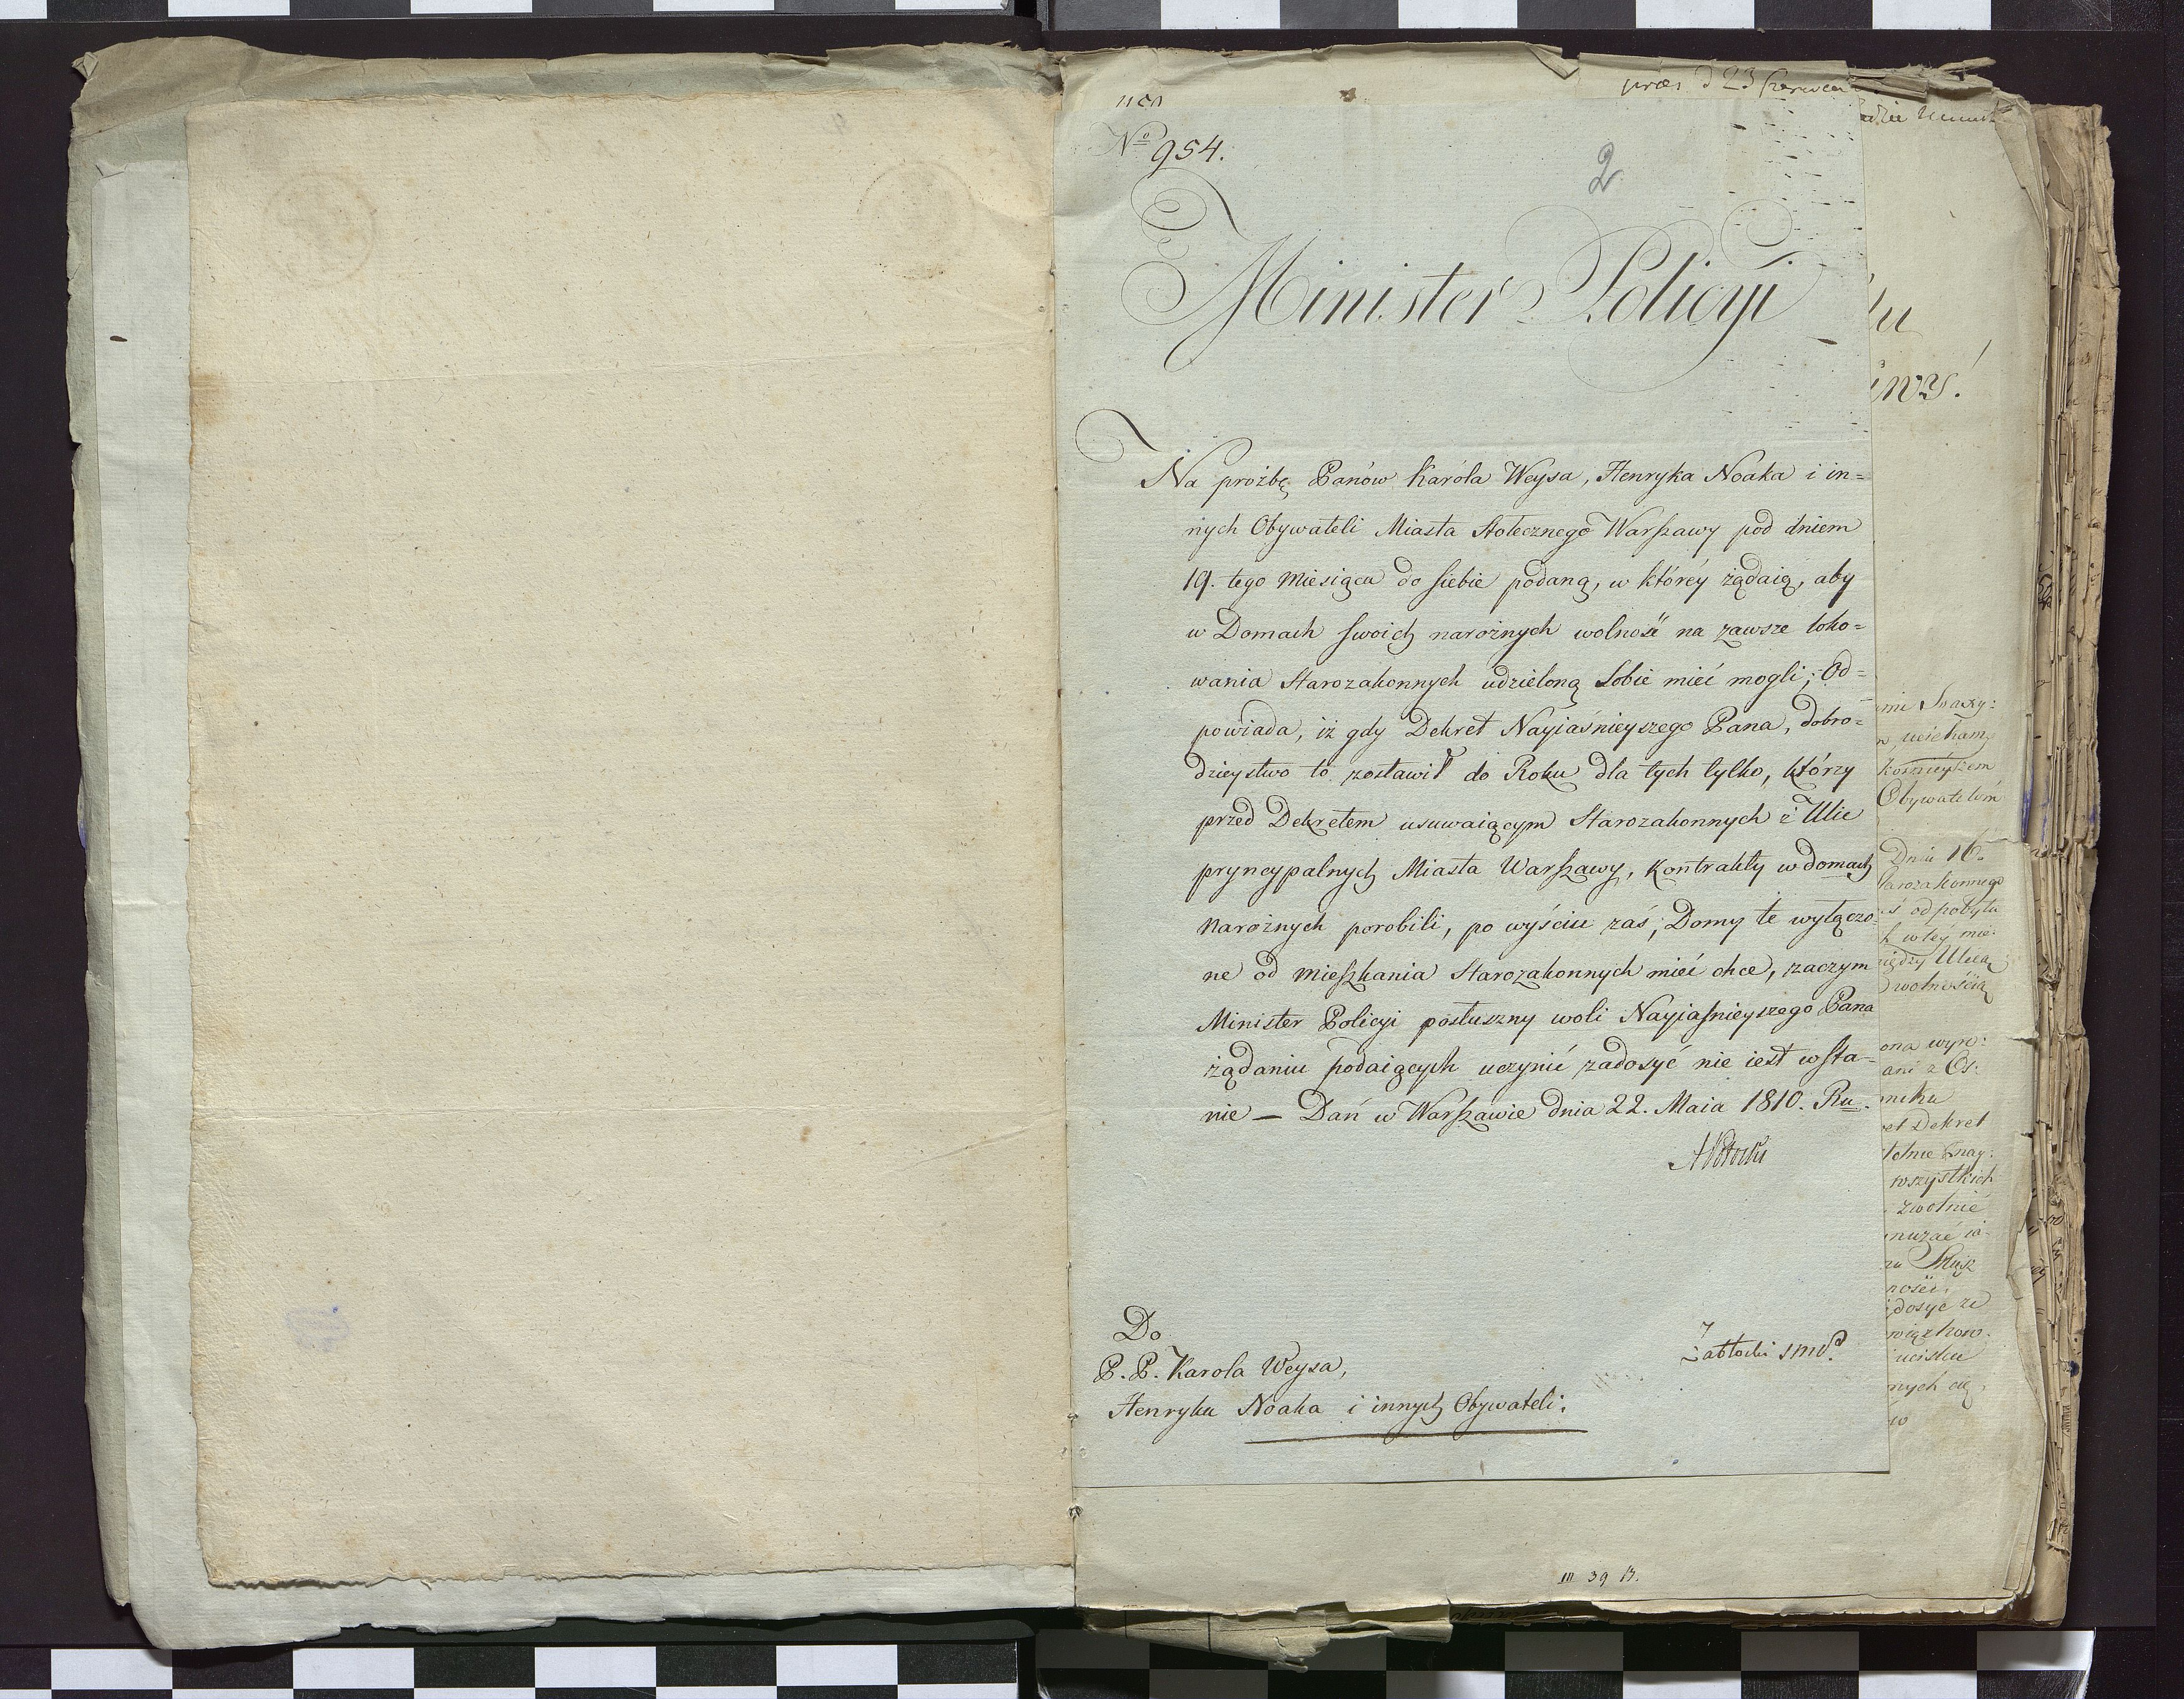 præs d 23 Czerwca
No 954.
2
Minister Policyi
Na prożbę Panów Karóla Weysa, Henryka Noaka i in=
nych Obywateli Miasta Stołecznego Warszawy pod dniem
19. tego Miesiąca do siebie podaną, w którey żądaią, aby
w Domach swoich narożnych wolność na zawsze loko=
wania Starozakonnych udzieloną sobie mieć mogli; Od=
powiada, iż gdy Dekret Nayiaśnieyszego Pana, dobro=
dzieystwo to zostawił do Roku dla tych tylko, którzy
przed Dekretem usuwaiącym Starozakonnych z Ulic
pryncypalnych Miasta Warszawy, Kontrakty w domach
Narożnych porobili, po wyściu zaś, Domy te wyłączo=
ne od mieszkania Starozakonnych mieć chce, zaczym
Minister Policyi posłuszny woli Nayiaśnieyszego Pana
żądaniu podaiących uczynić zadosyć nie iest w sta=
nie — Dań w Warszawie dnia 22. Maia 1810. Ru.
APotocki
Do
P. P. Karola Weysa,
Henryka Noaka i innych Obywateli.
Zabłocki
III 39 B.
ku
korzuykem
Obywatelom
Dniu 16.
Starozakonnego
od pobytu
w tey mie=
Ulicą
wolnością
ona wyro:
ani z Os:
Dekret
wszystkich
zwolnić
dosyć ze
ucisku
nych